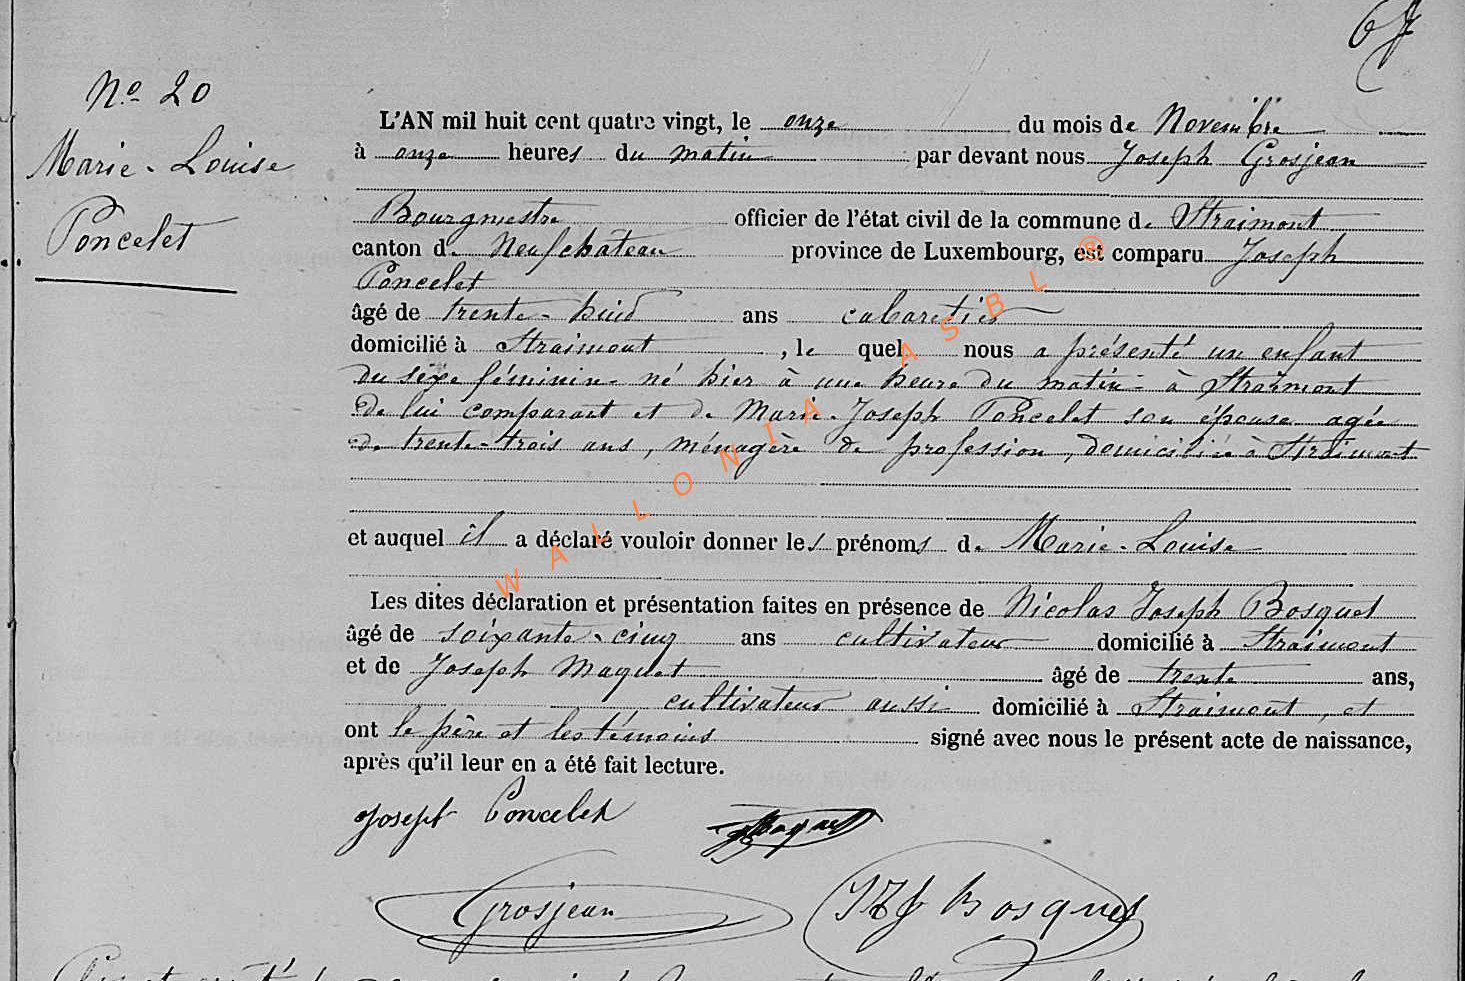 67
Nº 20
Marie-Louise
Poncelet
L'AN mil huit cent quatre vingt, le onze du mois de Novembre
à onze heures du matin par devant nous Joseph Grosjean
Bourgmestre officier de l'état civil de la commune de Straimont
canton de Neufchâteau province de Luxembourg, est comparu Joseph
Poncelet
âgé de trente-huit ans cabaretier
domicilié à Straimont, le quel nous a présenté un enfant
du sexe féminin né hier à une heure du matin à Straimont
de lui comparant et de Marie-Joseph Poncelet son épouse agée
de trente-trois ans, ménagère de profession, domiciliée à Straimont
et auquel il a déclaré vouloir donner les prénoms de Marie-Louise
Les dites déclaration et présentation faites en présence de Nicolas Joseph Bosquet
âgé de soixante-cinq ans cultivateur domicilié à Straimont
et de Joseph Maquet âgé de trente ans,
cultivateur aussi domicilié à Straimont, et
ont le père et les témoins signé avec nous le présent acte de naissance,
après qu'il leur en a été fait lecture.
Joseph Poncelet
Maquet
Grosjean
Bosquet
WALLONIA ASBL ®